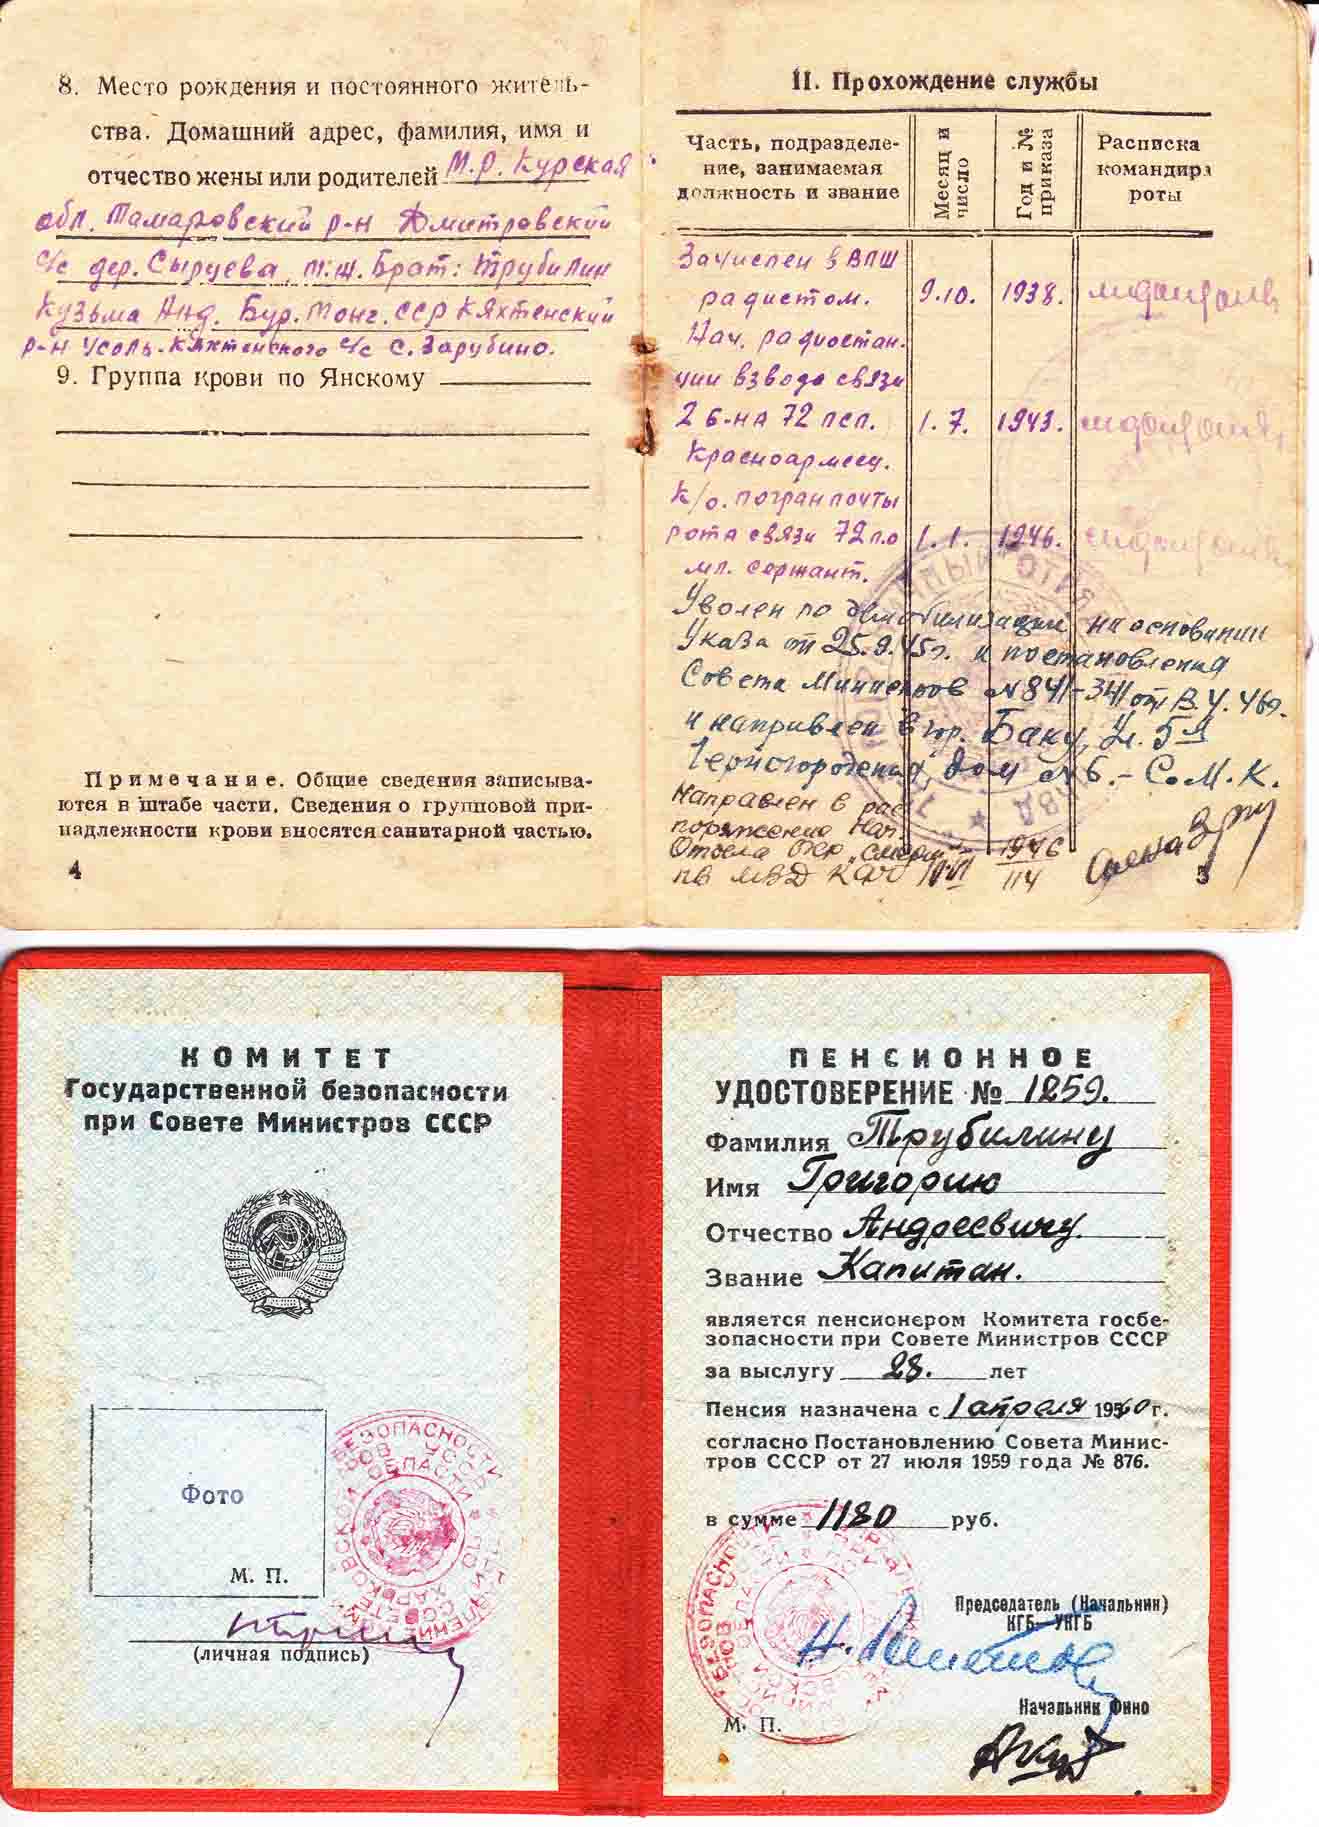 8. Место рождения и постоянного житель-
ства. Домашний адрес, фамилия, имя и
отчество жены или родителей М.Р. Курская
обл. Томаровский р-н Дмитровский
с/с дер. Сырцева, т.ж. Брат: Трубилин
Кузьма Анд. Бур. Монг. ССР Кяхтенский
р-н Усоль-Кяхтенского с/с с. Зарубино.
9. Группа крови по Янскому
Примечание. Общие сведения записыва-
ются в штабе части. Сведения о групповой при-
надлежности крови вносятся санитарной частью.
4
II. Прохождение службы
Часть, подразделе-
ние, занимаемая
должность и звание
Месяц и
число
Год и №
приказа
Расписка
командира
роты
Зачислен в ВПШ
радистом. 9.10. 1938.
Нач. радиостан.
ции взвода связи
2 б-на 72 псп. 1.7. 1943.
Красноармеец.
К/о. погранпочты
рота связи 72 п.о 1.1. 1946.
мл. сержант.
Уволен по демобилизации на основании
Указа от 25.9.45г. и постановления
Совета Министров №841-341 от
и направлен в гор. Баку, ул. 5я
Черногородская, дом №6.
Направлен в рас
поряжение Нач.
Отдела Окр "Смерш" 1946
пв МВД 114
5
КОМИТЕТ
Государственной безопасности
при Совете Министров СССР
Фото
М. П.
(личная подпись)
ПЕНСИОННОЕ
УДОСТОВЕРЕНИЕ № 1259.
Фамилия Трубилину
Имя Григорию
Отчество Андреевичу.
Звание Капитан.
является пенсионером Комитета госбе-
зопасности при Совете Министров СССР
за выслугу 28. лет
Пенсия назначена с 1 апреля 1960 г.
согласно Постановлению Совета Минис-
тров СССР от 27 июля 1959 года № 876.
в сумме 1180 руб.
Председатель (Начальник)
КГБ—УКГБ
Начальник Фино
М. П.